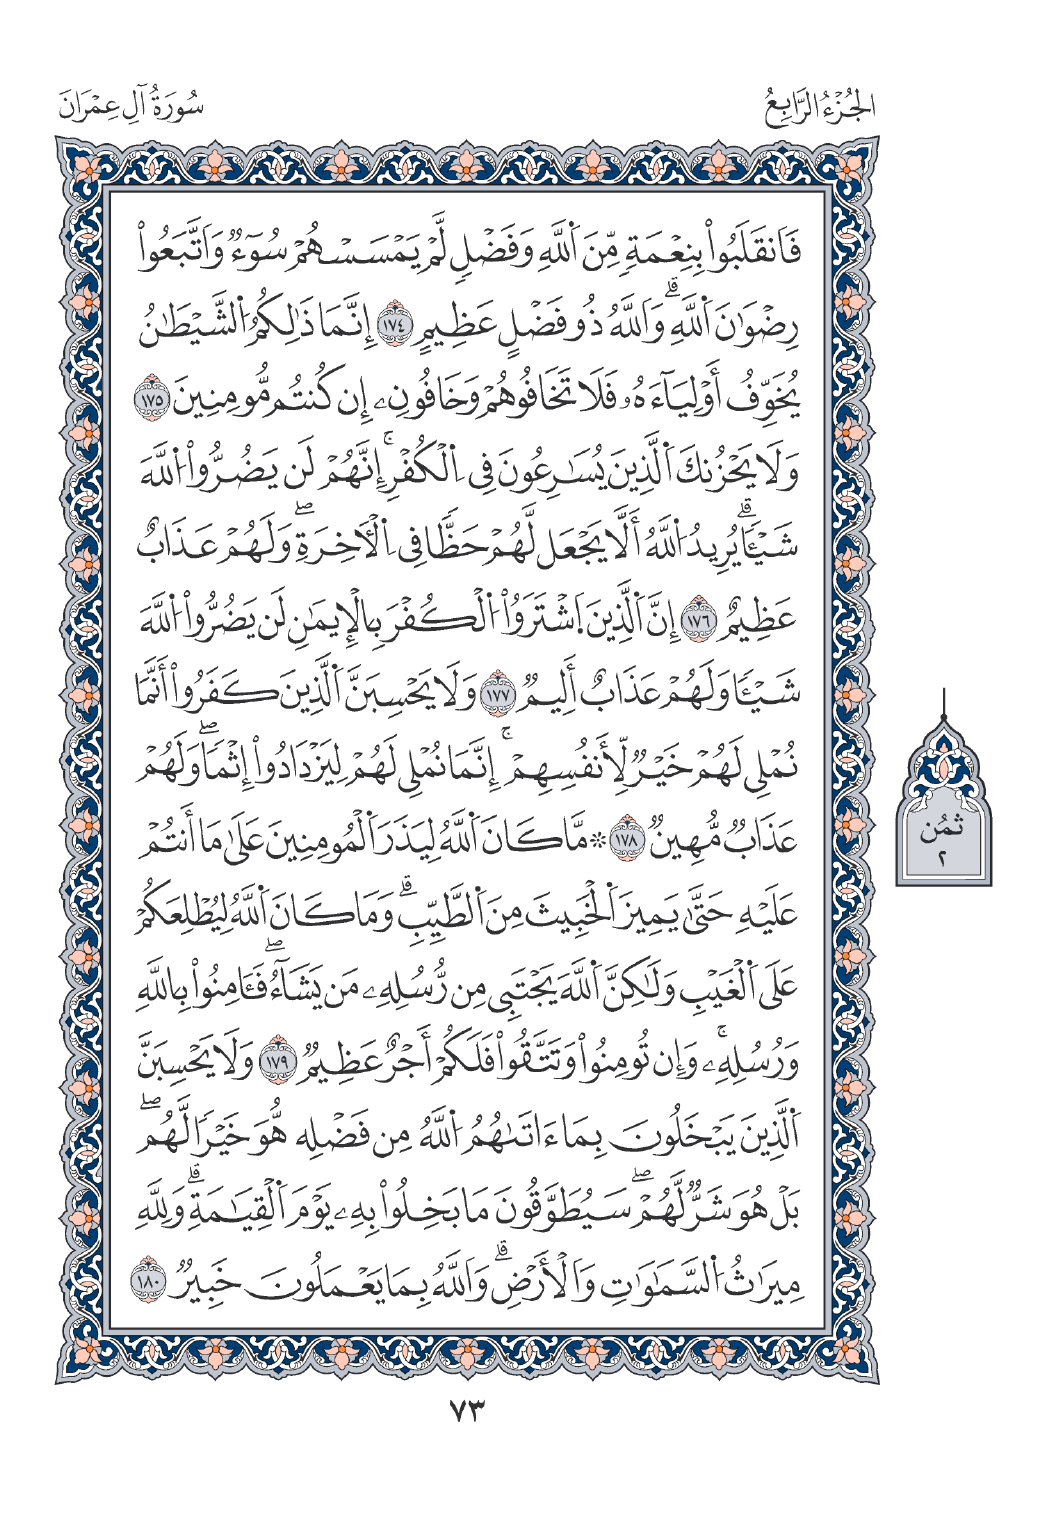 الجُزْءُ الرَّابِعُ
سُورَةُ آلِ عِمْرَانَ
فَانقَلَبُواْ بِنِعْمَةٖ مِّنَ اَ۬للَّهِ وَفَضْلٖ لَّمْ يَمْسَسْهُمْ سُوٓءٞ وَاتَّبَعُواْ
رِضْوَٰنَ اَ۬للَّهِۗ وَاللَّهُ ذُو فَضْلٍ عَظِيمٍ ١٧٤ إِنَّمَا ذَٰلِكُمُ اُ۬لشَّيْطَٰنُ
يُخَوِّفُ أَوْلِيَآءَهُۥ فَلَا تَخَافُوهُمْ وَخَافُونِۦ إِن كُنتُم مُّومِنِينَ ١٧٥
وَلَا يَحْزُنكَ اَ۬لذِينَ يُسَٰرِعُونَ فِي اِ۬لْكُفْرِۚ إِنَّهُمْ لَن يَضُرُّواْ اُ۬للَّهَ
شَيْـٔٗاۗ يُرِيدُ اُ۬للَّهُ أَلَّا يَجْعَل لَّهُمْ حَظّٗا فِي اِ۬لْأٓخِرَةِۖ وَلَهُمْ عَذَابٌ
عَظِيمٌ ١٧٦ إِنَّ اَ۬لذِينَ اَ۪شْتَرَوُاْ اُ۬لْكُفْرَ بِالْإِيمَٰنِ لَن يَضُرُّواْ اُ۬للَّهَ
شَيْـٔٗا وَلَهُمْ عَذَابٌ أَلِيمٞ ١٧٧ وَلَا يَحْسِبَنَّ اَ۬لذِينَ كَفَرُواْ أَنَّمَا
نُمْلِي لَهُمْ خَيْرٞ لِّأَنفُسِهِمْۚ إِنَّمَا نُمْلِي لَهُمْ لِيَزْدَادُواْ إِثْمٗاۖ وَلَهُمْ
عَذَابٞ مُّهِينٞ ١٧٨ ۞ مَّا كَانَ اَ۬للَّهُ لِيَذَرَ اَ۬لْمُومِنِينَ عَلَىٰ مَا أَنتُمْ
عَلَيْهِ حَتَّىٰ يَمِيزَ اَ۬لْخَبِيثَ مِنَ اَ۬لطَّيِّبِۗ وَمَا كَانَ اَ۬للَّهُ لِيُطْلِعَكُمْ
عَلَى اَ۬لْغَيْبِ وَلَٰكِنَّ اَ۬للَّهَ يَجْتَبِي مِن رُّسُلِهِۦ مَن يَشَآءُۖ فَـَٔامِنُواْ بِاللَّهِ
وَرُسُلِهِۦۚ وَإِن تُومِنُواْ وَتَتَّقُواْ فَلَكُمْ أَجْرٌ عَظِيمٞ ١٧٩ وَلَا يَحْسِبَنَّ
اَ۬لذِينَ يَبْخَلُونَ بِمَا ءَاتَىٰهُمُ اُ۬للَّهُ مِن فَضْلِه هُّوَ خَيْرٗا لَّهُمۖ
بَلْ هُوَ شَرّٞ لَّهُمْۖ سَيُطَوَّقُونَ مَا بَخِلُواْ بِهِۦ يَوْمَ اَ۬لْقِيَٰمَةِۗ وَلِلَّهِ
مِيرَٰثُ اُ۬لسَّمَٰوَٰتِ وَالْأَرْضِۗ وَاللَّهُ بِمَا يَعْمَلُونَ خَبِيرٞ ١٨٠
ثُمُن
٢
٧٣